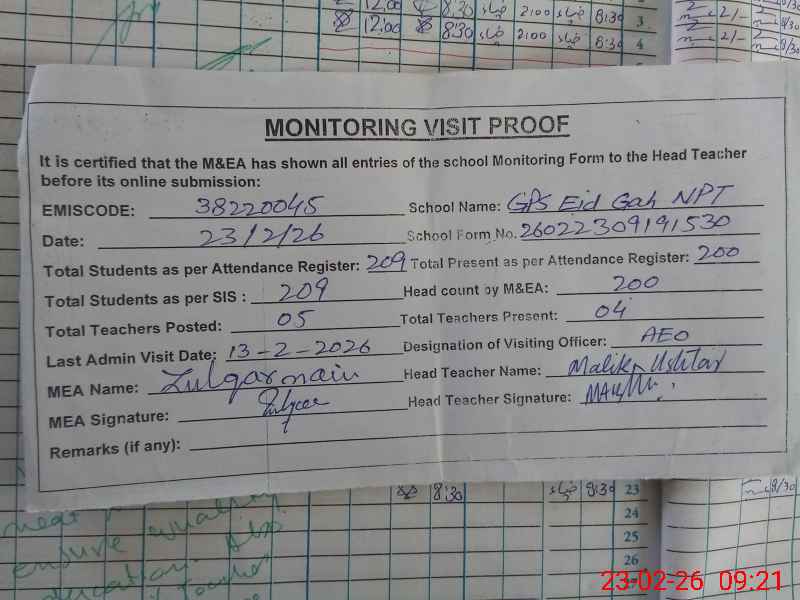 12:00 8:30 ضیاء 2:00 ضیاء 8:30 3
12:00 8:30 ضیاء 2:00 ضیاء 8:30 4
MONITORING VISIT PROOF
It is certified that the M&EA has shown all entries of the school Monitoring Form to the Head Teacher
before its online submission:
EMISCODE: 38220045 School Name: GPS Eid Gah NPT
Date: 23/2/26 School Form No. 26022309191530
Total Students as per Attendance Register: 209 Total Present as per Attendance Register: 200
Total Students as per SIS : 209 Head count by M&EA: 200
Total Teachers Posted: 05 Total Teachers Present: 04
Last Admin Visit Date: 13-2-2026 Designation of Visiting Officer: AEO
MEA Name: Zulqarnain Head Teacher Name: Malik Ushtar
MEA Signature: Head Teacher Signature:
Remarks (if any):
8:30 ضیاء 8:30 23
24
25
26
ensure quality
23-02-26 09:21